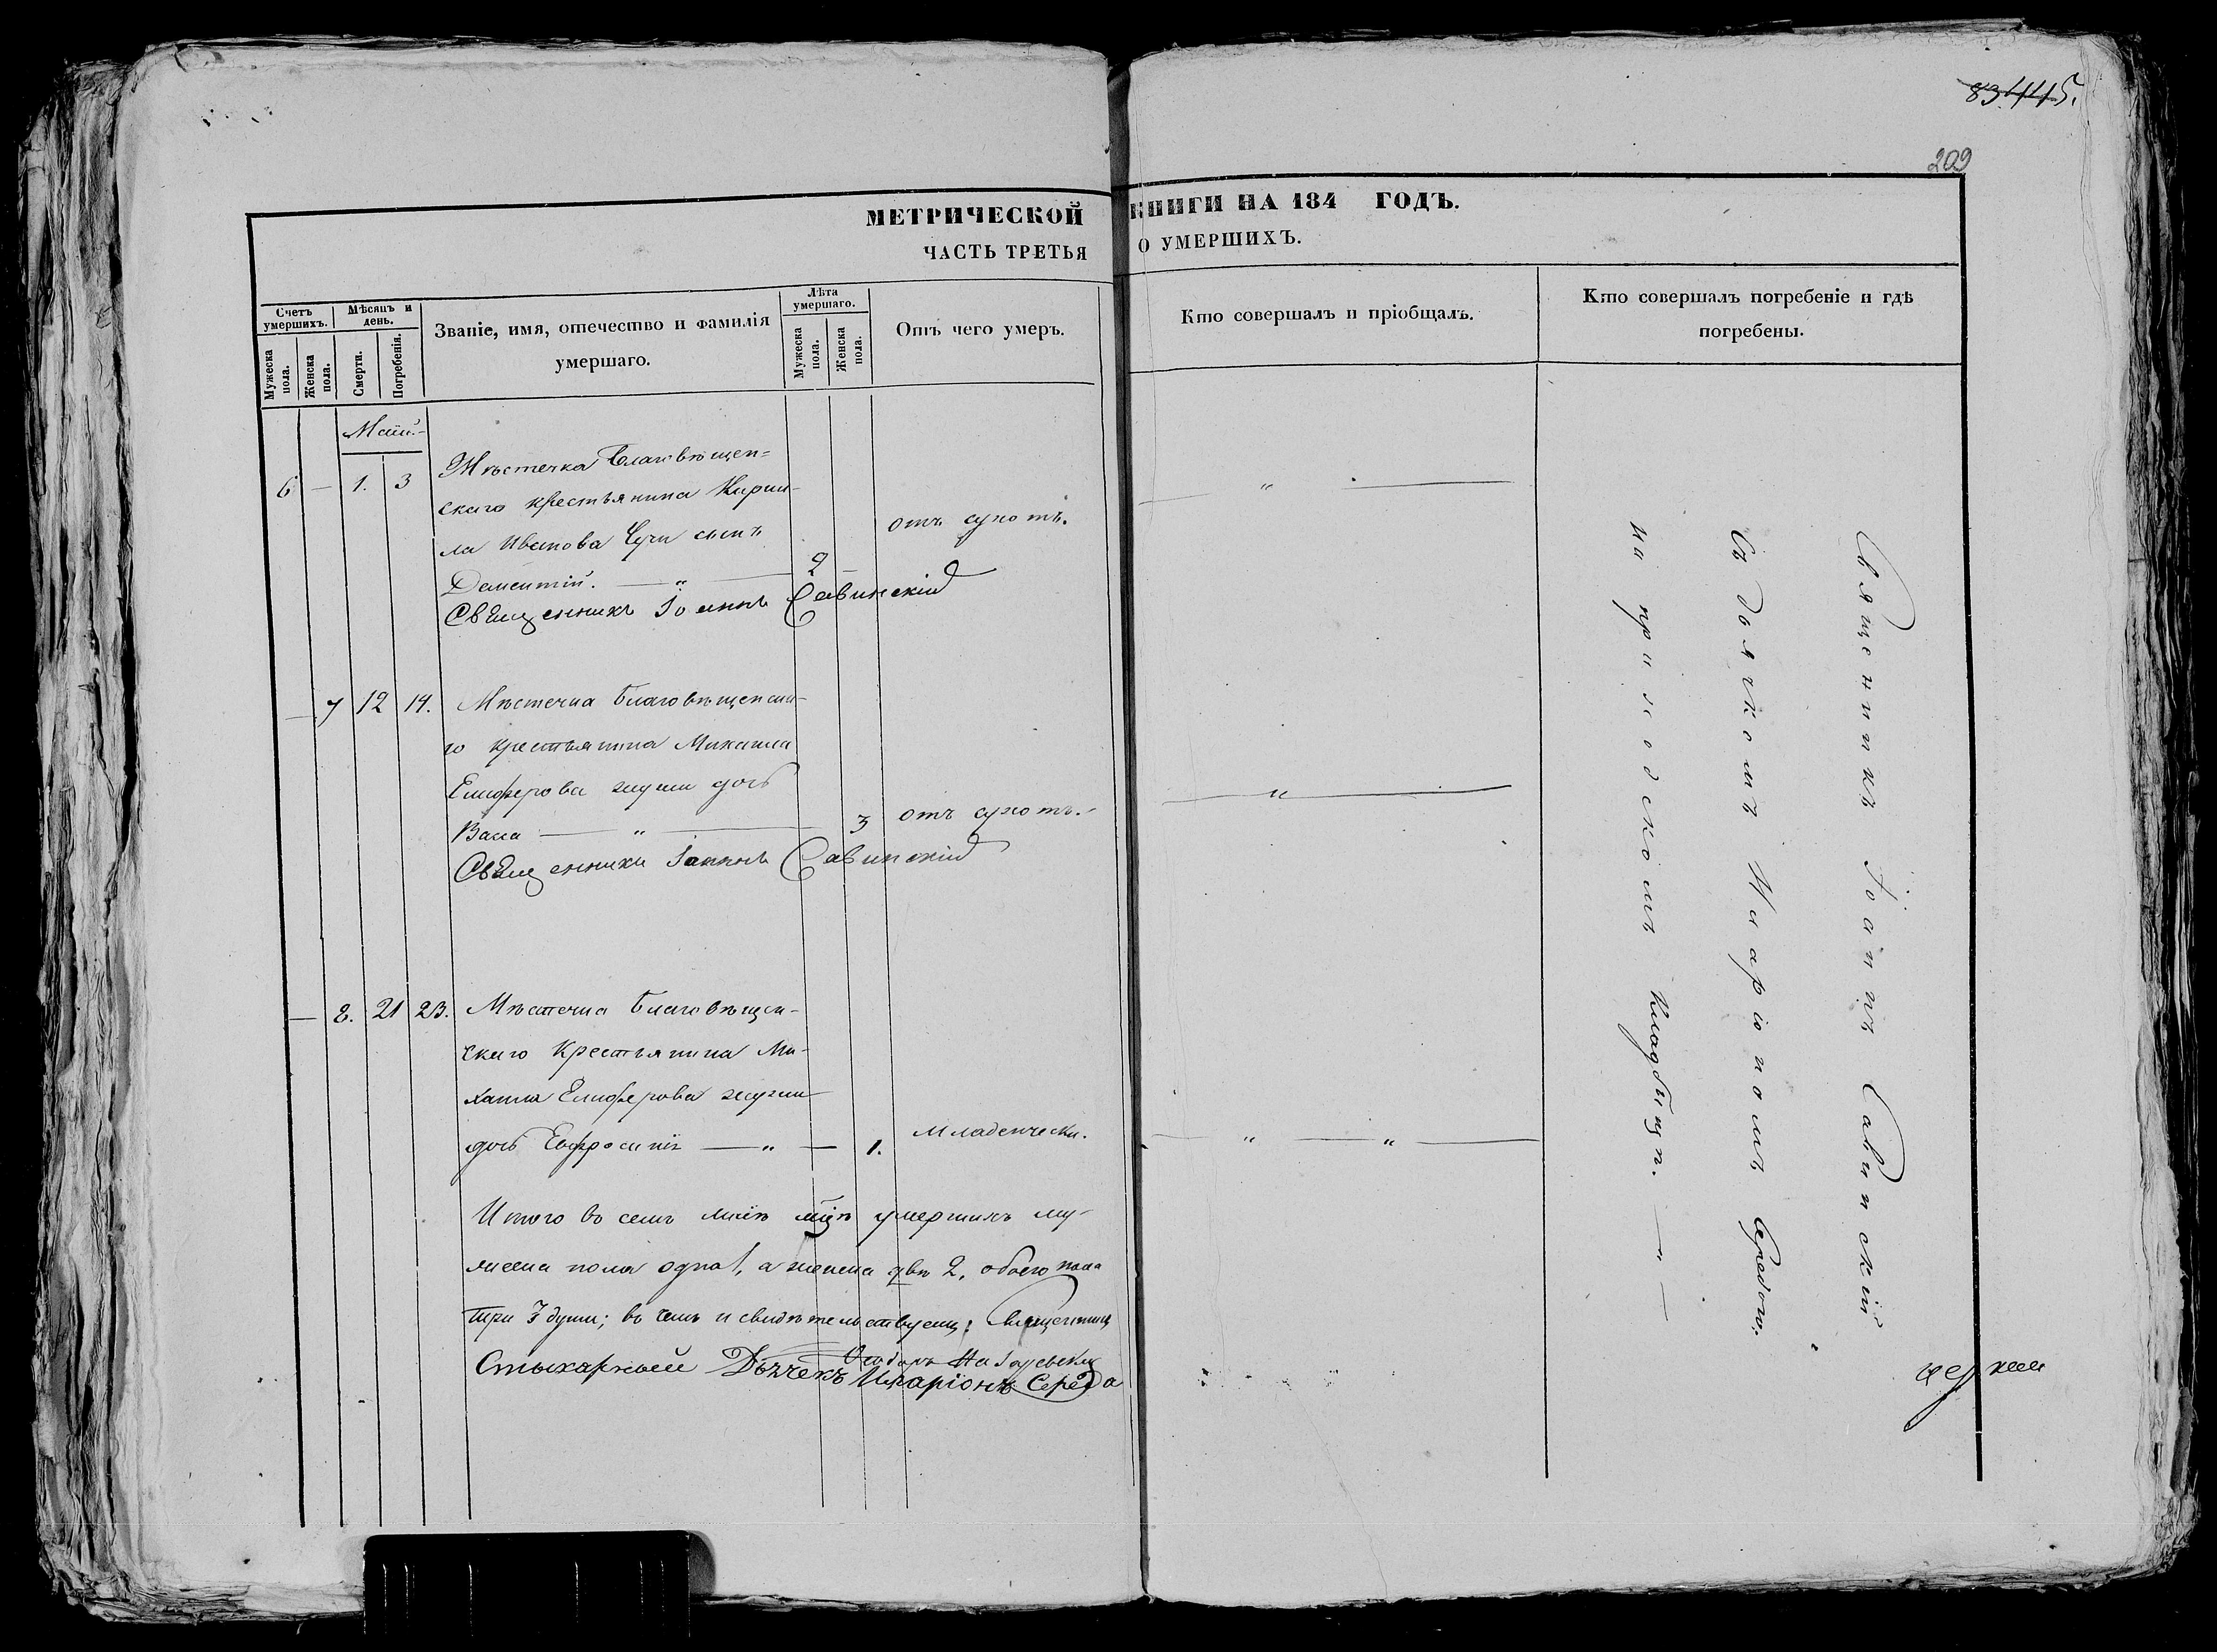 83445.
209
МЕТРИЧЕСКОЙ КНИГИ НА 184 ГОДЪ.
ЧАСТЬ ТРЕТЬЯ О УМЕРШИХЪ.
Счетъ умершихъ.
Мужеска пола.
Женска пола.
Мѣсяцъ и день.
Смерти.
Погребенія.
Званіе, имя, отечество и фамилія умершаго.
Лѣта умершаго.
Мужеска пола.
Женска пола.
Отъ чего умеръ.
Кто совершалъ и пріобщалъ.
Кто совершалъ погребеніе и гдѣ погребены.
Маій.
6 — 1. 3 Мѣстечка Благовѣщен=
скаго крестьянина Кирил-
ла Иванова сынъ
Дементій. — „ — 2 — отъ сухотъ. — „ —
Священникъ Іоаннъ Савинскій
— 7 12 14. Мѣстечка Благовѣщенска-
го крестьянина Михаила
Елиферова дочь
Васса — „ — 3 отъ сухотъ. — „ —
Священникъ Іоаннъ Савинскій
— 8. 21 23. Мѣстечка Благовѣщен-
скаго Крестьянина Ми-
хаила Елиферова
дочь Евфросинія — „ — 1. Младенчески. — „ — „ —
Итого въ семъ маіѣ мцѣ умершихъ му-
жеска пола одна 1, а женска двѣ 2, обоего пола
три 3 души; въ чемъ и свидѣтельствуемъ: Священникъ
Стихарный Дьячекъ Иларіонъ Середа
Священникъ Іоаннъ Савинскій
Съ дьячкомъ Иларіономъ Середою.
на приходскомъ кладбищѣ. — „ —